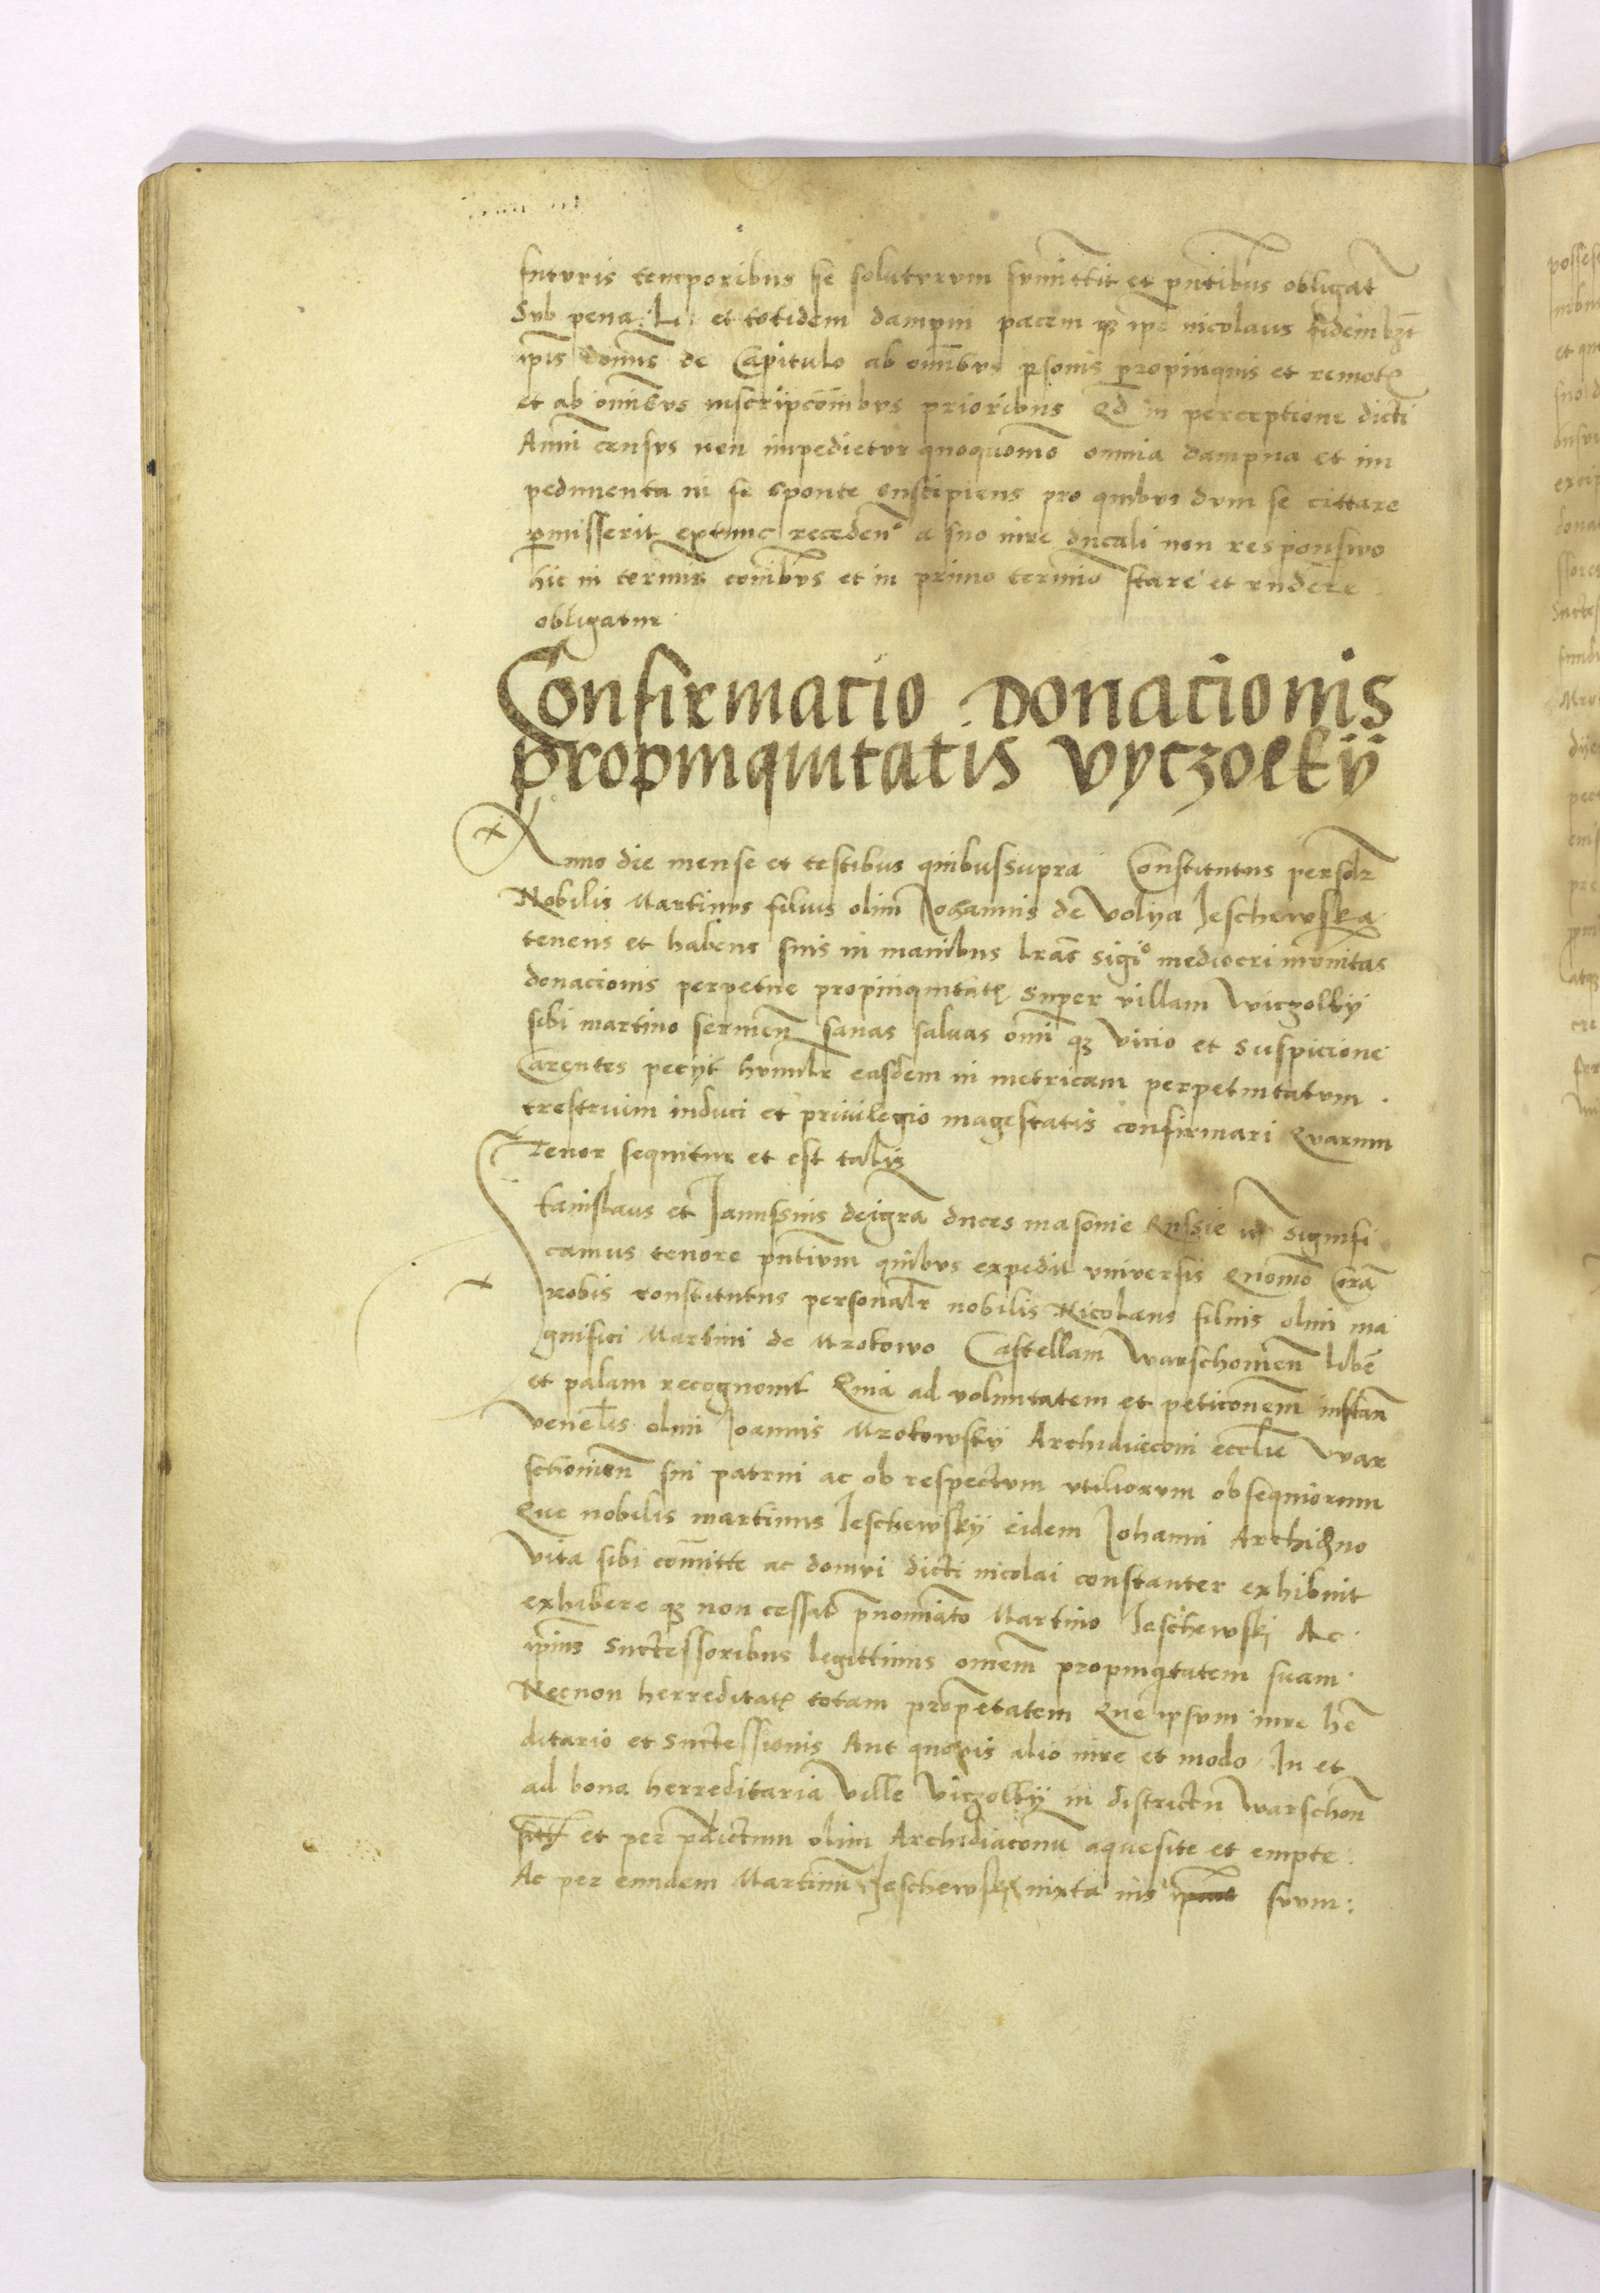 futuris temporibus se soluturum sumittit et pñtibus obligat
Sub pena Li et totidem dampni pacem ipe nicolaus
ipis domis de Capitulo ab omibus psonis propinquis et remotꝭ
et ab omibus inscripcoibus prioribus Qd in perceptione dicti
Anni census non impedietur quoquomo omnia dampna et im
pedimenta in se sponte suscipiens pro quibus dum se cittare
pmisserit extunc receden a suo iure ducali non responsuro
hic in terminis coibus et in primo termio stare et rndere
obligatur
Confirmacio Donacionis
propinquitatis Vyczolky
Anno die mense et testibus quibussupra Constitutus personlr
Nobilis Martinus filius olim Johannis de Volija Jeschewska
tenens et habens suis in manibus lras sigio mediocri munitas
donacionis perpetue propinquitatꝭ super villam Viczolky
sibi martino sermen sanas saluas omi qꝫ vicio et suspicione
Carentes pecyt humilr easdem in metricam perpetuitatum
trestruim induci et priuilegio magestatis confirmari Quarum
Tenor sequitur et est talis
Stanislaus et Janussius deigra duces masouie Russie etc Signifi
camus tenore pntium quibus expedit vniuersis Quomo Cora
nobis constitutus personalr nobilis Nicolaus filius olim ma
gnifici Martini de Mrokowo Castellani Warschouien libe
et palam recognouit Quia ad voluntatem et peticonem instan
venelis olim Joannis Mrokowsky Archidiaconi ecclie War
schouien sui patrui ac ob respectum vtiliorum obsequiorum
Que nobilis martinus Jeschewsky eidem Johanni Archidno
vita sibi comitte ac domui dicti nicolai constanter exhibuit
exhibere qꝫ non cessat pnominato Martino Jeschewski Ac
ipius Successoribus legittimis omem propinqtatem suam
Necnon herreditatꝭ totam proprietatem Que ipsum iure he
ditario et Successionis Aut quouis alio iure et modo In et
ad bona herreditaria Ville Viczolky in districtu Warschon
et per pdictum olim Archidiaconu aquesite et empte
Ac per eundem Martinu Jeschewsky iuxta ius suum